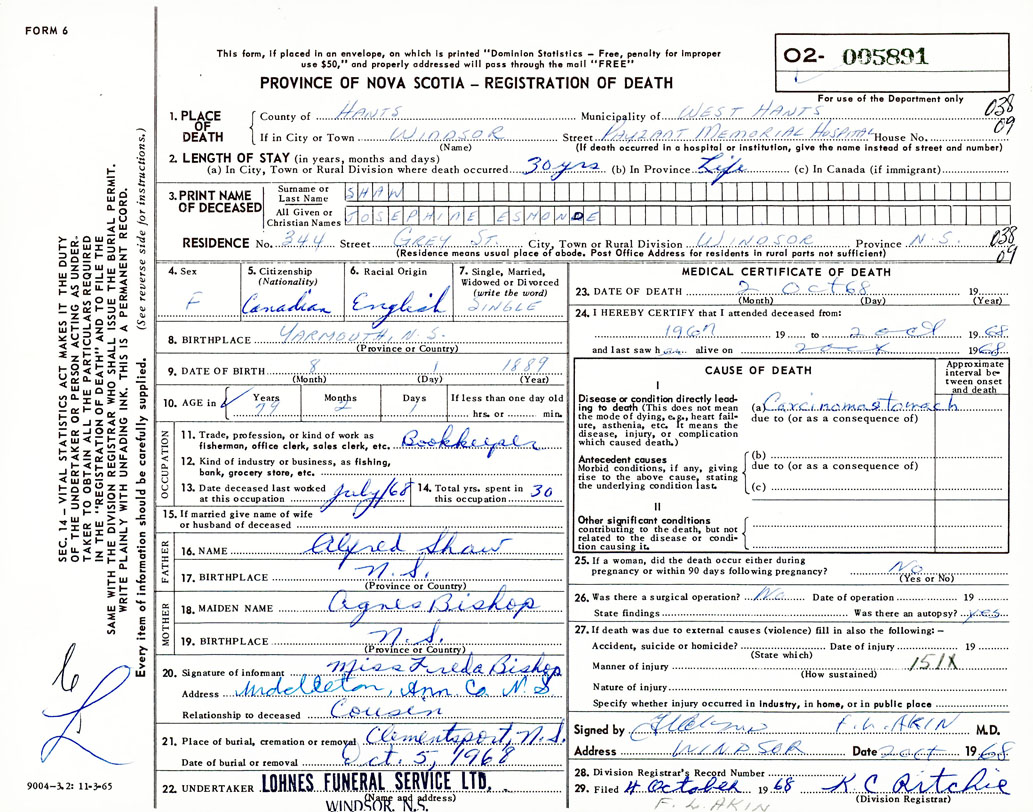 FORM 6
This form, if placed in an envelope, on which is printed "Dominion Statistics – Free, penalty for improper
use $50," and properly addressed will pass through the mail "FREE"
PROVINCE OF NOVA SCOTIA – REGISTRATION OF DEATH
02- 005891
For use of the Department only
SEC. 14 – VITAL STATISTICS ACT MAKES IT THE DUTY
OF THE UNDERTAKER OR PERSON ACTING AS UNDER-
TAKER TO OBTAIN ALL THE PARTICULARS REQUIRED
IN THE "REGISTRATION OF DEATH" AND TO FILE THE
SAME WITH THE DIVISION REGISTRAR WHO SHALL ISSUE THE BURIAL PERMIT.
WRITE PLAINLY WITH UNFADING INK. THIS IS A PERMANENT RECORD.
Every item of information should be carefully supplied. (See reverse side for instructions.)
1. PLACE OF DEATH
County of HANTS Municipality of WEST HANTS 038
If in City or Town WINDSOR Street PAYZANT MEMORIAL HOSPITAL House No. 09
(Name) (If death occurred in a hospital or institution, give the name instead of street and number)
2. LENGTH OF STAY (in years, months and days)
(a) In City, Town or Rural Division where death occurred 30 yrs (b) In Province Life (c) In Canada (if immigrant)
3. PRINT NAME OF DECEASED
Surname or Last Name SHAW
All Given or Christian Names JOSEPHINE ESMONDE
RESIDENCE No. 344 Street GREY ST. City, Town or Rural Division WINDSOR Province N.S. 038
(Residence means usual place of abode. Post Office Address for residents in rural parts not sufficient) 09
4. Sex F
5. Citizenship (Nationality) Canadian
6. Racial Origin English
7. Single, Married, Widowed or Divorced (write the word) SINGLE
8. BIRTHPLACE YARMOUTH, N.S.
(Province or Country)
9. DATE OF BIRTH 8 1 1889
(Month) (Day) (Year)
10. AGE in Years 79 Months 2 Days 1 If less than one day old hrs. or min.
OCCUPATION
11. Trade, profession, or kind of work as fisherman, office clerk, sales clerk, etc. Bookkeeper
12. Kind of industry or business, as fishing, bank, grocery store, etc.
13. Date deceased last worked at this occupation July/68 14. Total yrs. spent in this occupation 30
15. If married give name of wife or husband of deceased
FATHER
16. NAME Alfred Shaw
17. BIRTHPLACE N.S.
(Province or Country)
MOTHER
18. MAIDEN NAME Agnes Bishop
19. BIRTHPLACE N.S.
(Province or Country)
20. Signature of informant Miss Freda Bishop
Address Middleton, Ann Co N S
Relationship to deceased Cousen
21. Place of burial, cremation or removal Clementsport, N.S.
Date of burial or removal Oct. 5, 1968
22. UNDERTAKER LOHNES FUNERAL SERVICE LTD.
(Name and address)
WINDSOR, N.S.
9004-3.2: 11-3-65
MEDICAL CERTIFICATE OF DEATH
23. DATE OF DEATH 2 Oct 68 19
(Month) (Day) (Year)
24. I HEREBY CERTIFY that I attended deceased from:
19 to 2 oct 1968
and last saw h alive on 2 oct 1968
CAUSE OF DEATH
Approximate interval between onset and death
I
Disease or condition directly leading to death (This does not mean the mode of dying, e.g., heart failure, asthenia, etc. It means the disease, injury, or complication which caused death.)
(a) Carcinoma stomach
due to (or as a consequence of)
Antecedent causes
Morbid conditions, if any, giving rise to the above cause, stating the underlying condition last.
(b)
due to (or as a consequence of)
(c)
II
Other significant conditions contributing to the death, but not related to the disease or condition causing it.
25. If a woman, did the death occur either during pregnancy or within 90 days following pregnancy? No
(Yes or No)
26. Was there a surgical operation? No Date of operation 19
State findings Was there an autopsy? yes
27. If death was due to external causes (violence) fill in also the following: –
Accident, suicide or homicide? Date of injury 19
(State which)
Manner of injury 151X
(How sustained)
Nature of injury
Specify whether injury occurred in Industry, in home, or in public place
Signed by F. L. AKIN M.D.
Address WINDSOR Date 2 oct 1968
28. Division Registrar's Record Number
29. Filed 4 October 1968 K C Ritchie
(Division Registrar)
F. L. AKIN